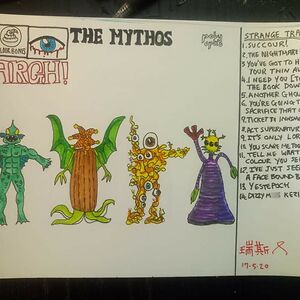 THE MYTHOS
ARGH!
STRANGE TRA
1. SUCCOUR!
2. THE NIGHTMARE
3. YOU'VE GOT TO H
YOUR THIN A
4. I NEED YOU (T
THE BOOK DOWN
5. ANOTHER GHOU
6. YOU'RE GOING T
SACRIFICE THAT
7. TICKET TO INNSM
ACT SUPERNATUR
9. IT'S ONLY LO
10. YOU SCARE ME TOO
11. TELL ME WHAT
COLOUR YOU SE
12. I'VE JUST SEE
A FACE BOUND B
13. YESTEPOCH
14. DIZZY M KEZI
瑞斯
17.5.20